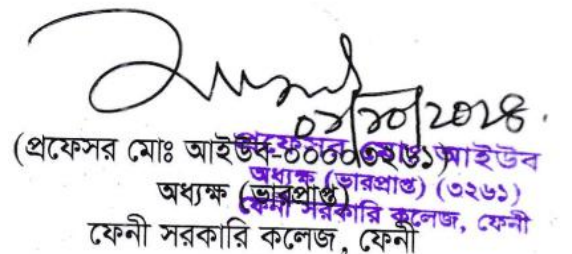 ০১/১০/২০২৪.
(প্রফেসর মোঃ আইউব-০০০০৩২৬১)
অধ্যক্ষ (ভারপ্রাপ্ত)
ফেনী সরকারি কলেজ, ফেনী
প্রফেসর মোঃ আইউব
অধ্যক্ষ (ভারপ্রাপ্ত) (৩২৬১)
ফেনী সরকারি কলেজ, ফেনী